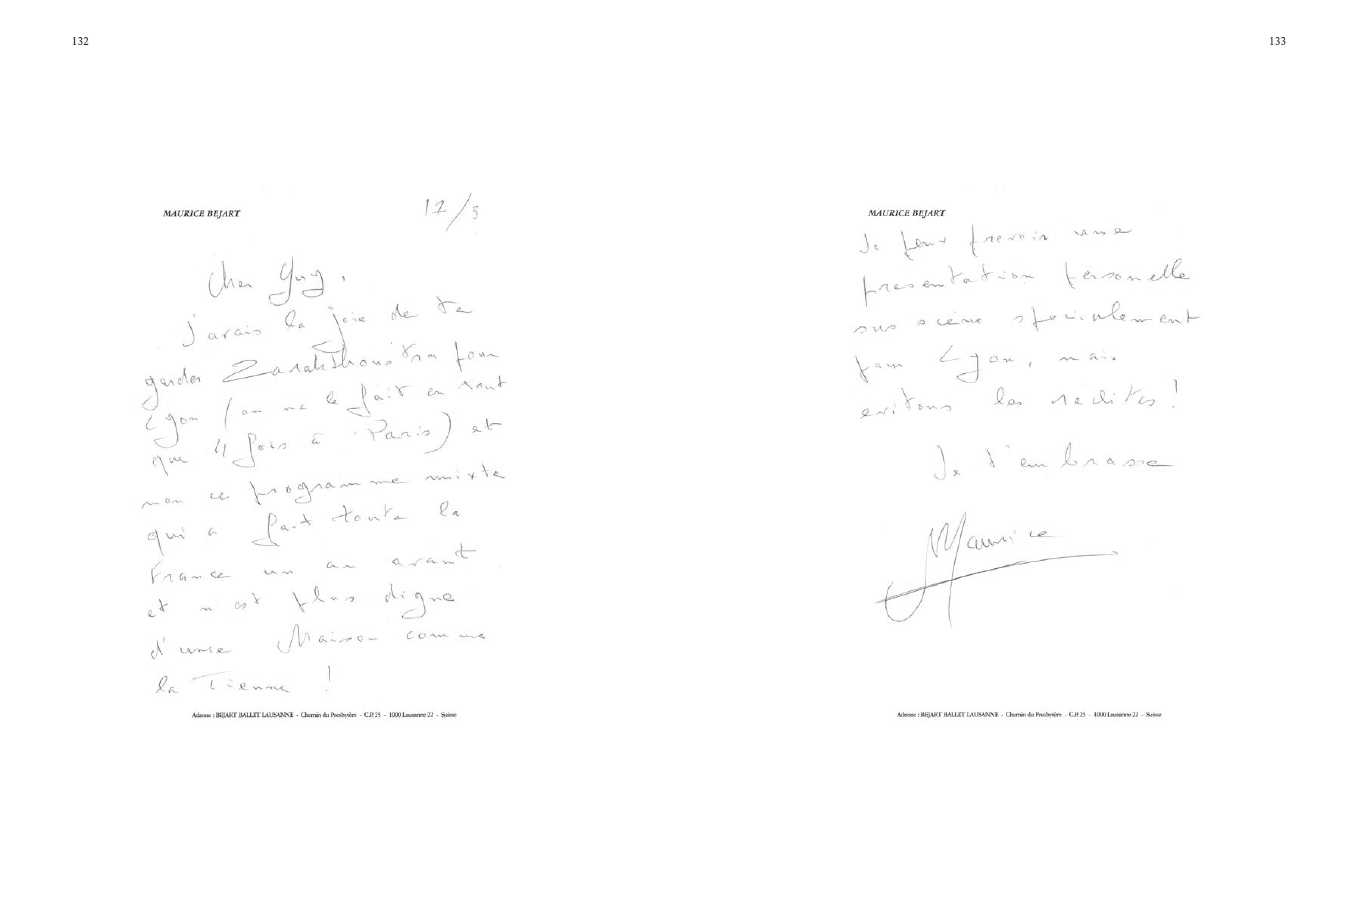 132
133
MAURICE BEJART
17/3
Cher Guy,
j'avais la joie de te
garder Zarathoustra pour
Lyon (on ne le fait en tout
que 4 fois à Paris) et
non ce programme mixte
qui a fait toute la
France un an avant
et n'est plus digne
d'une Maison comme
la Tienne !
Adresse : BEJART BALLET LAUSANNE - Chemin du Presbytère - C.P. 25 - 1000 Lausanne 22 - Suisse
MAURICE BEJART
Je peux prevoir une
presentation personelle
sur scène specialement
pour Lyon, mais
evitons les redites !
Je t'embrasse
Maurice
Adresse : BEJART BALLET LAUSANNE - Chemin du Presbytère - C.P. 25 - 1000 Lausanne 22 - Suisse